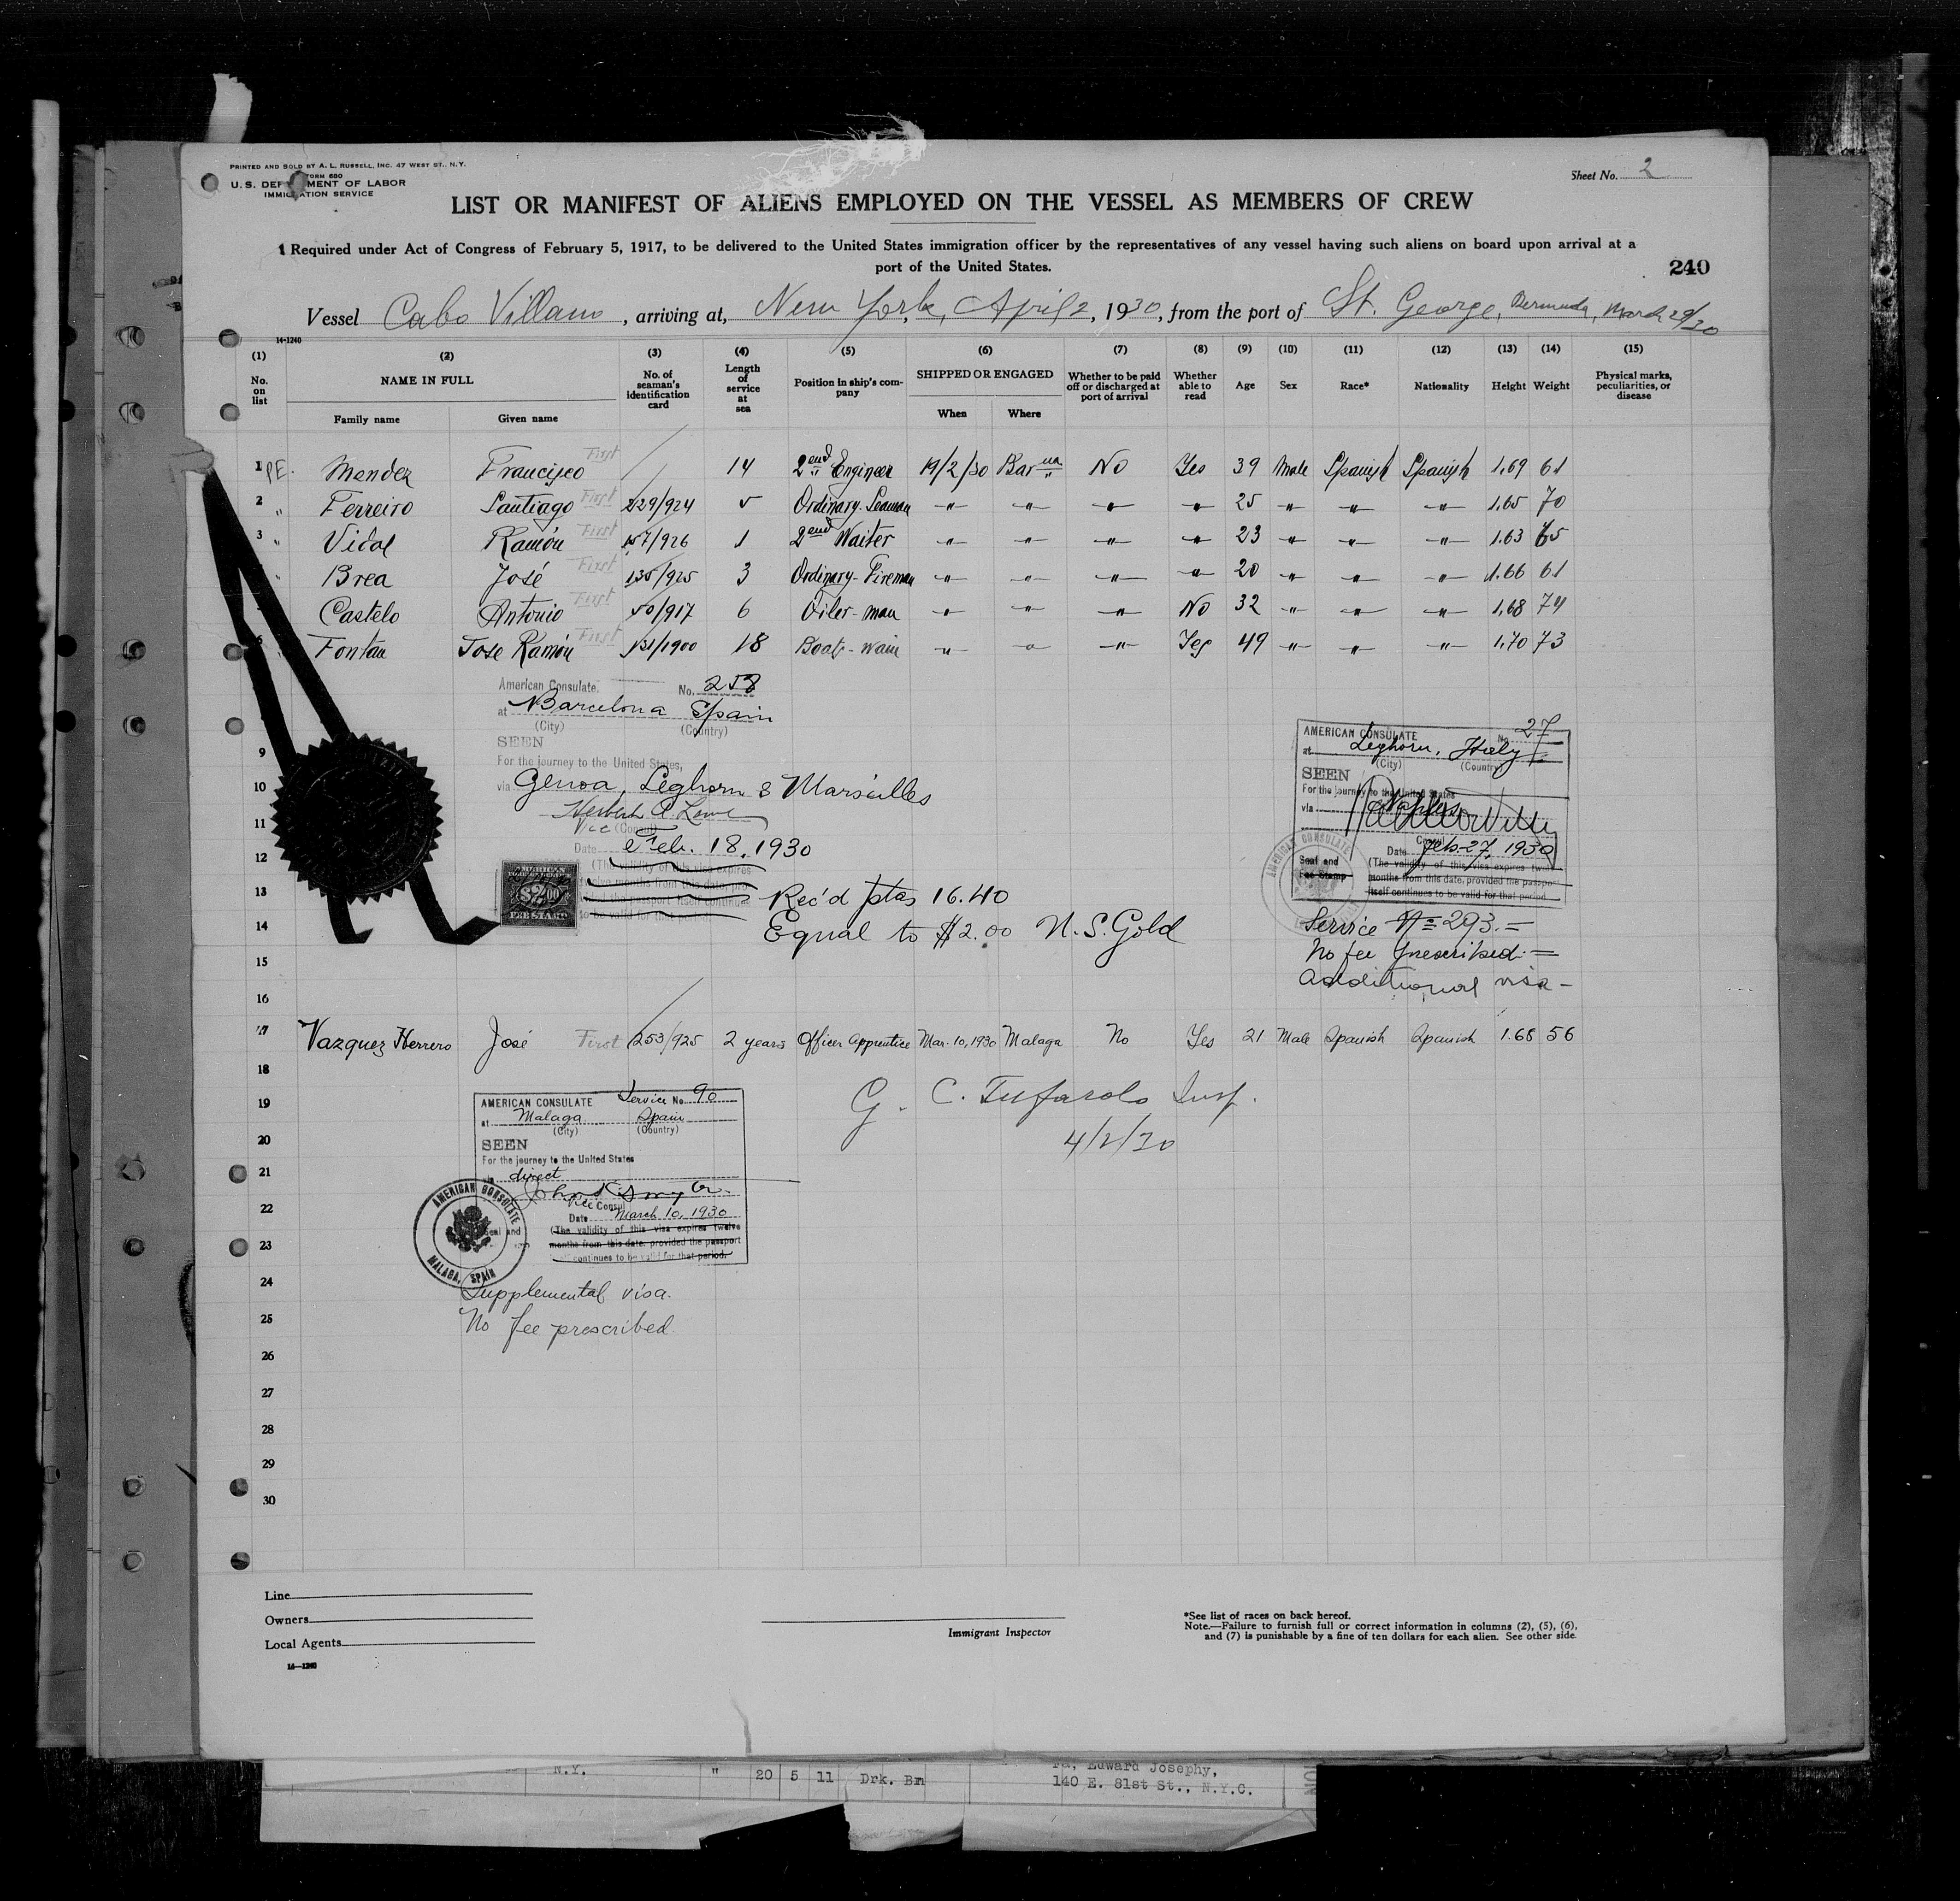 PRINTED AND SOLD BY A. L. RUSSELL, INC. 47 WEST ST., N.Y.
FORM 680
U.S. DEPARTMENT OF LABOR
IMMIGRATION SERVICE
Sheet No. 2
LIST OR MANIFEST OF ALIENS EMPLOYED ON THE VESSEL AS MEMBERS OF CREW
Required under Act of Congress of February 5, 1917, to be delivered to the United States immigration officer by the representatives of any vessel having such aliens on board upon arrival at a
port of the United States.
240
Vessel Cabo Villano, arriving at, New York, April 2, 1930, from the port of St. George, Bermuda, March 29/30
14-1240
(1) (2) (3) (4) (5) (6) (7) (8) (9) (10) (11) (12) (13) (14) (15)
No. on list NAME IN FULL No. of seaman's identification card Length of service at sea Position in ship's company SHIPPED OR ENGAGED Whether to be paid off or discharged at port of arrival Whether able to read Age Sex Race* Nationality Height Weight Physical marks, peculiarities, or disease
Family name Given name When Where
1 PE. Mendez Francisco First 14 2end Engineer 19/2/30 Barna No Yes 39 Male Spanish Spanish 1,69 61
2 " Ferreiro Santiago First 229/924 5 Ordinary-Seaman " " " " 25 " " " 1,65 70
3 " Vidal Ramón First 157/926 1 2end Waiter " " " " 23 " " " 1.63 65
Brea José First 135/925 3 Ordinary-Fireman " " " " 20 " " " 1.66 61
Castelo Antonio First 50/917 6 Oiler-man " " " No 32 " " " 1,68 74
6 Fontan Jose Ramón First 131/1900 18 Boat-wain " " " Yes 49 " " " 1,70 73
American Consulate. No. 258
at Barcelona Spain
(City) (Country)
SEEN
For the journey to the United States,
via Genoa, Leghorn & Marseilles
Herbert A. Lowe
Vice (Consul)
Date Feb. 18, 1930
(The validity of this visa expires
months from this date,
passport itself continues
to be valid for that
AMERICAN
$2.00
FEE STAMP
Rec'd ptas 16.40
Equal to $2.00 U.S. Gold
AMERICAN CONSULATE No. 27
at Leghorn, Italy
(City) (Country)
SEEN
For the journey to the United States
via Naples
Consul
Date Feb. 27, 1930
Seal and
Fee Stamp
(The validity of this visa expires twelve
months from this date, provided the passport
itself continues to be valid for that period
AMERICAN CONSULATE
Service No 293.=
No fee prescribed.=
Additional visa-
9
10
11
12
13
14
15
16
17 Vazquez Herrero José First 253/925 2 years Officer Apprentice Mar. 10, 1930 Malaga No Yes 21 Male Spanish Spanish 1.68 56
18
19
20
21
22
23
24
25
26
27
28
29
30
G. C. Tufarolo Insp.
4/2/30
AMERICAN CONSULATE Service No. 90
at Malaga Spain
(City) (Country)
SEEN
For the journey to the United States
direct
Vice Consul
Date March 10, 1930
(The validity of this visa expires twelve
months from this date, provided the passport
continues to be valid for that period.
AMERICAN CONSULATE
MALAGA, SPAIN
Supplemental visa.
No fee prescribed
Line
Owners
Local Agents
14-1240
Immigrant Inspector
*See list of races on back hereof.
Note.—Failure to furnish full or correct information in columns (2), (5), (6),
and (7) is punishable by a fine of ten dollars for each alien. See other side.
N.Y. " 20 5 11 Drk. Bn
Fa, Edward Josephy,
140 E. 81st St., N.Y.C.